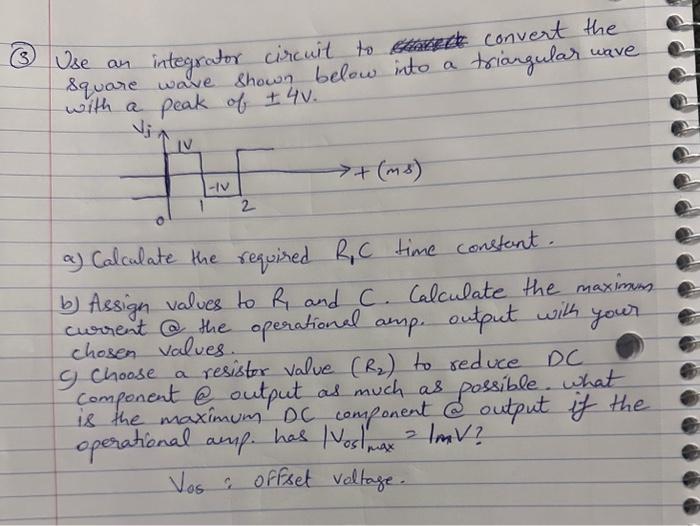 ③ Use an integrator circuit to convert the
square wave shown below into a triangular wave
with a peak of ±4V.
Vi
1V
t (ms)
-1V
0 1 2
a) Calculate the required R₁C time constant.
b) Assign values to R₁ and C. Calculate the maximum
current @ the operational amp. output with your
chosen values.
c) Choose a resistor value (R₂) to reduce DC
component @ output as much as possible. What
is the maximum DC component @ output if the
operational amp. has |Vos|max = 1mV?
Vos : offset voltage.